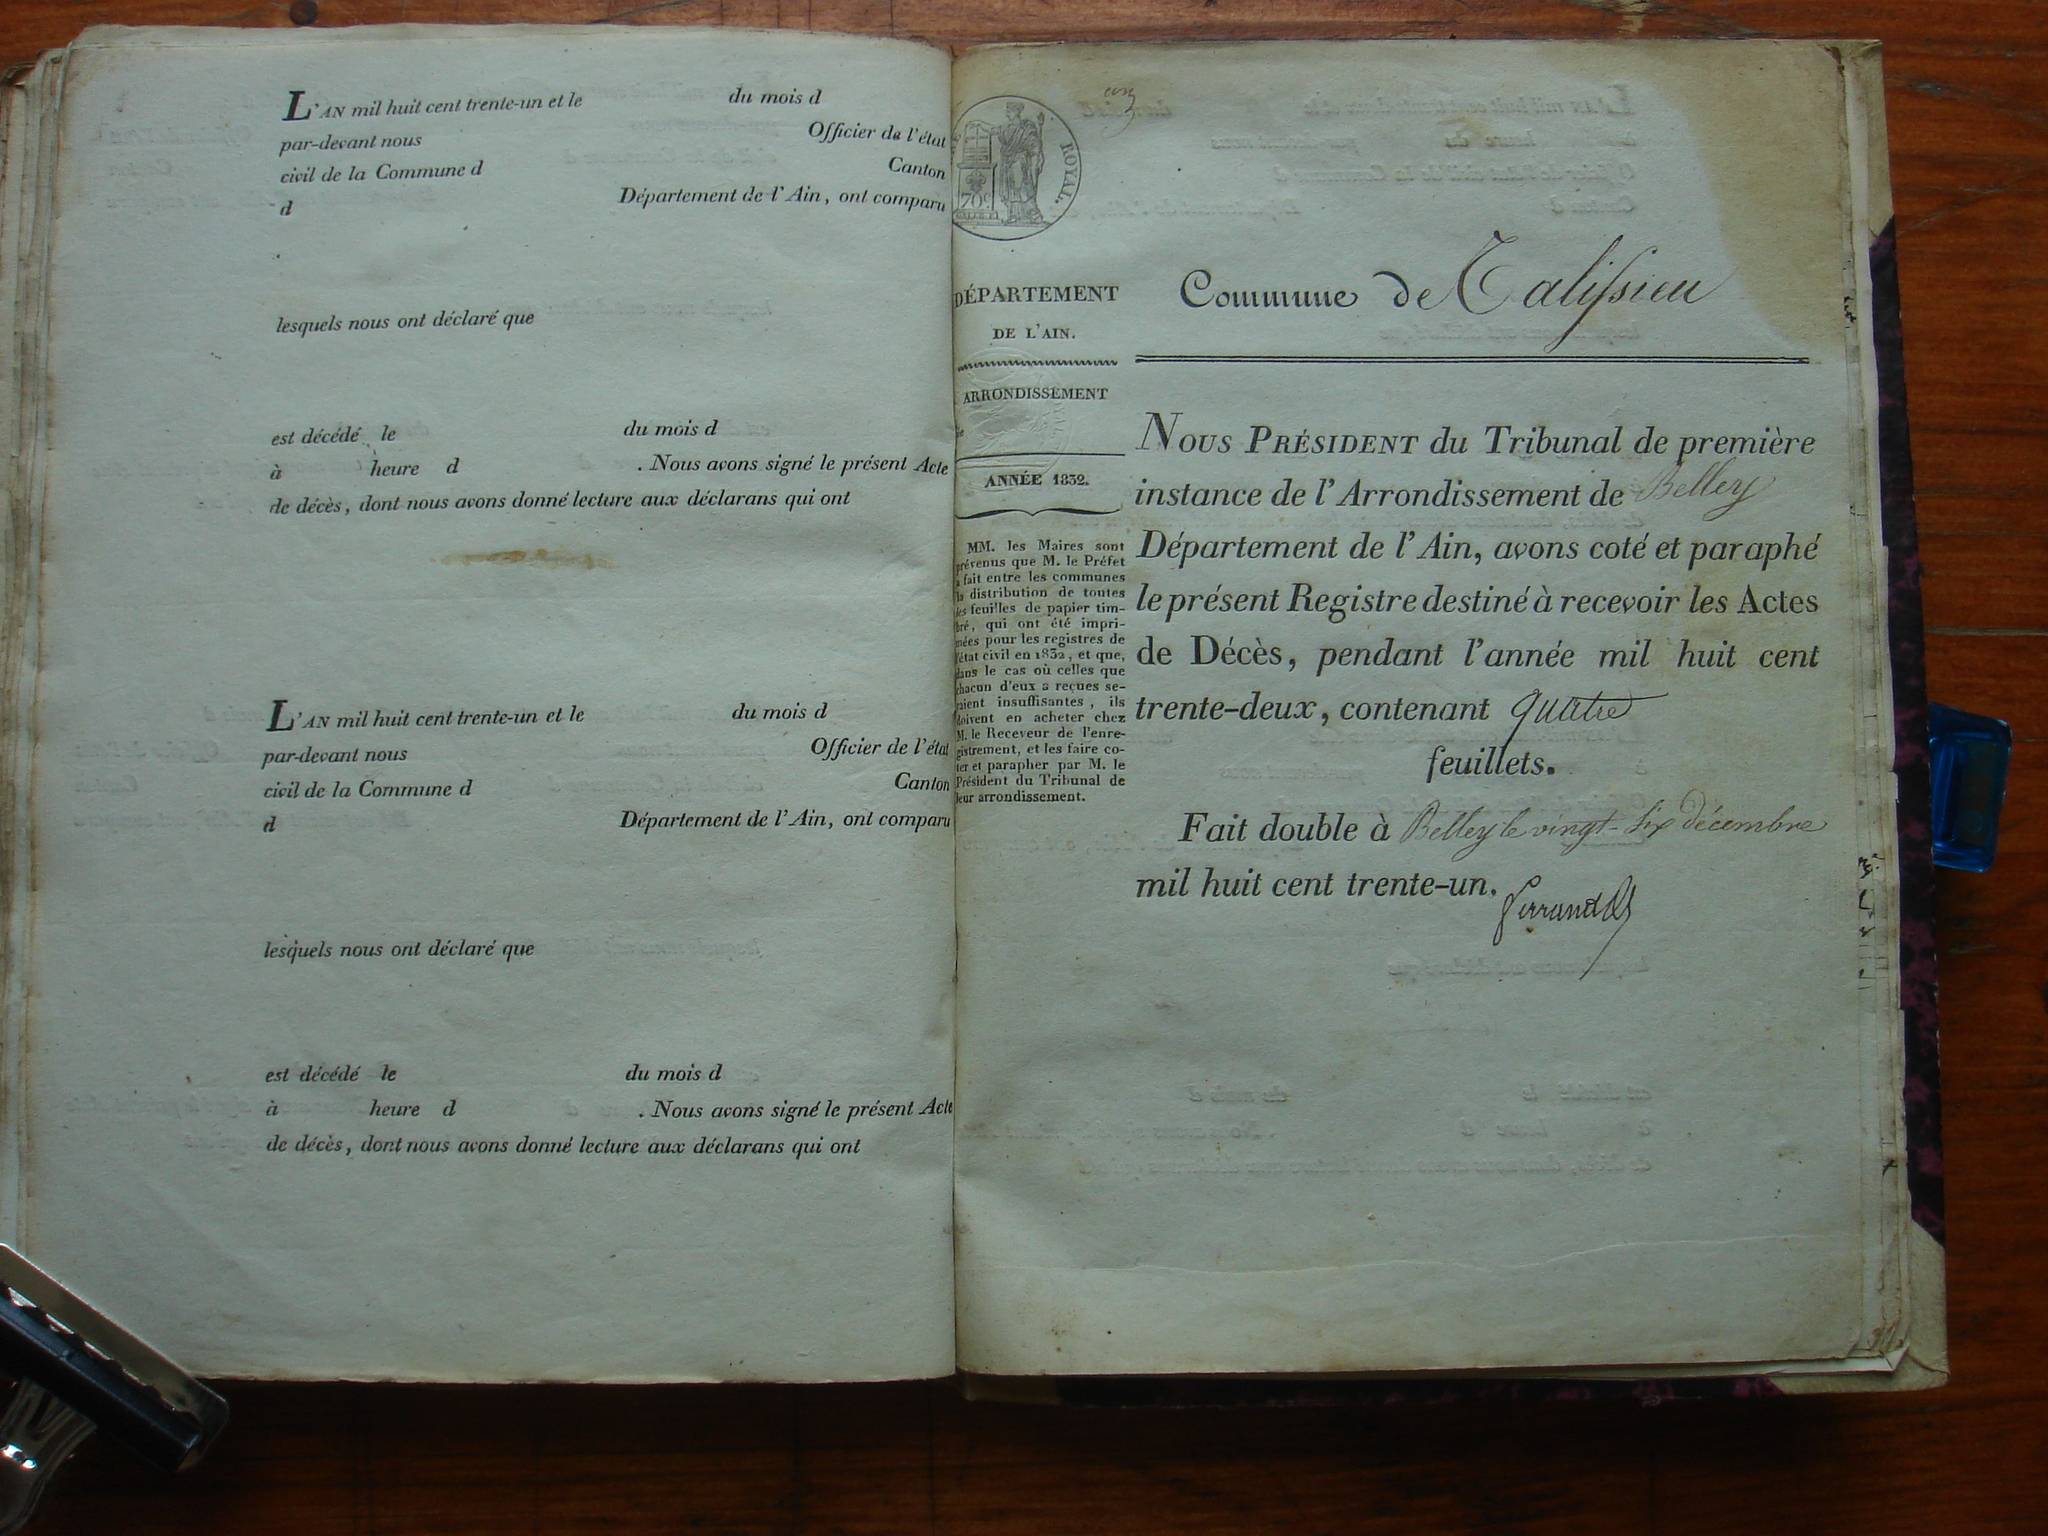 L'AN mil huit cent trente-un et le du mois d
par-devant nous Officier de l'état
civil de la Commune d Canton
d Département de l'Ain, ont comparu
lesquels nous ont déclaré que
est décédé le du mois d
à heure d . Nous avons signé le présent Acte
de décès, dont nous avons donné lecture aux déclarans qui ont
L'AN mil huit cent trente-un et le du mois d
par-devant nous Officier de l'état
civil de la Commune d Canton
d Département de l'Ain, ont comparu
lesquels nous ont déclaré que
est décédé le du mois d
à heure d . Nous avons signé le présent Acte
de décès, dont nous avons donné lecture aux déclarans qui ont
ROYAL.
70c
DÉPARTEMENT
DE L'AIN.
ARRONDISSEMENT
ANNÉE 1832.
MM. les Maires sont
prévenus que M. le Préfet
a fait entre les communes
la distribution de toutes
les feuilles de papier tim-
bré, qui ont été impri-
mées pour les registres de
l'état civil en 1832, et que,
dans le cas où celles que
chacun d'eux a reçues se-
raient insuffisantes, ils
doivent en acheter chez
M. le Receveur de l'enre-
gistrement, et les faire co-
ter et parapher par M. le
Président du Tribunal de
leur arrondissement.
Commune de Talissieu
NOUS PRÉSIDENT du Tribunal de première
instance de l'Arrondissement de Belley
Département de l'Ain, avons coté et paraphé
le présent Registre destiné à recevoir les Actes
de Décès, pendant l'année mil huit cent
trente-deux, contenant quatre
feuillets.
Fait double à Belley le vingt-six décembre
mil huit cent trente-un.